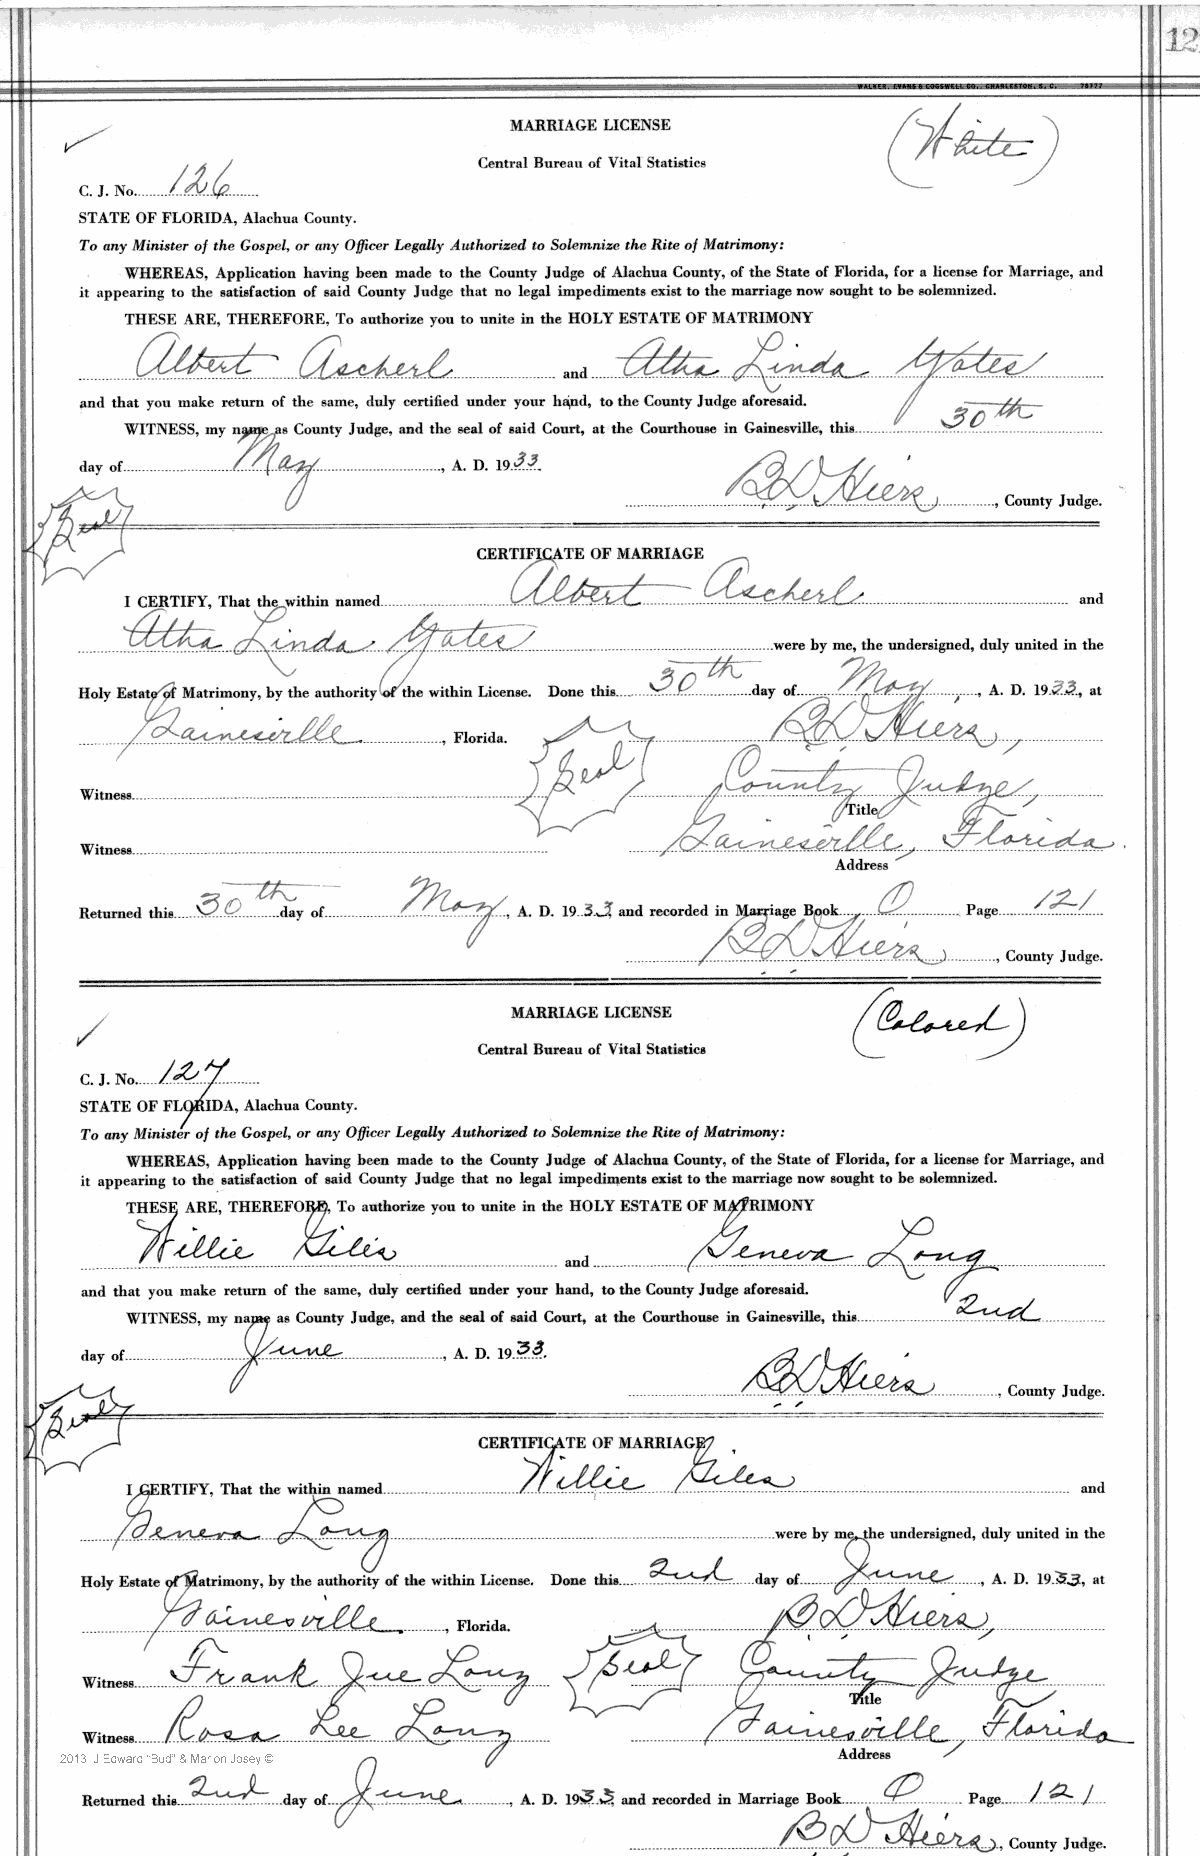 12
WALKER, EVANS & COGSWELL CO., CHARLESTON, S. C. 75777
MARRIAGE LICENSE
(White)
Central Bureau of Vital Statistics
C. J. No. 126
STATE OF FLORIDA, Alachua County.
To any Minister of the Gospel, or any Officer Legally Authorized to Solemnize the Rite of Matrimony:
WHEREAS, Application having been made to the County Judge of Alachua County, of the State of Florida, for a license for Marriage, and
it appearing to the satisfaction of said County Judge that no legal impediments exist to the marriage now sought to be solemnized.
THESE ARE, THEREFORE, To authorize you to unite in the HOLY ESTATE OF MATRIMONY
Albert Ascherl and Atha Linda Yates
and that you make return of the same, duly certified under your hand, to the County Judge aforesaid.
WITNESS, my name as County Judge, and the seal of said Court, at the Courthouse in Gainesville, this 30th
day of May, A. D. 1933.
B D Hiers, County Judge.
Seal
CERTIFICATE OF MARRIAGE
I CERTIFY, That the within named Albert Ascherl and
Atha Linda Yates were by me, the undersigned, duly united in the
Holy Estate of Matrimony, by the authority of the within License. Done this 30th day of May, A. D. 1933, at
Gainesville, Florida. B D Hiers,
Seal
Witness County Judge,
Title
Witness Gainesville, Florida.
Address
Returned this 30th day of May, A. D. 1933 and recorded in Marriage Book O Page 121
B D Hiers, County Judge.
MARRIAGE LICENSE
(Colored)
Central Bureau of Vital Statistics
C. J. No. 127
STATE OF FLORIDA, Alachua County.
To any Minister of the Gospel, or any Officer Legally Authorized to Solemnize the Rite of Matrimony:
WHEREAS, Application having been made to the County Judge of Alachua County, of the State of Florida, for a license for Marriage, and
it appearing to the satisfaction of said County Judge that no legal impediments exist to the marriage now sought to be solemnized.
THESE ARE, THEREFORE, To authorize you to unite in the HOLY ESTATE OF MATRIMONY
Willie Giles and Geneva Long
and that you make return of the same, duly certified under your hand, to the County Judge aforesaid.
WITNESS, my name as County Judge, and the seal of said Court, at the Courthouse in Gainesville, this 2nd
day of June, A. D. 1933.
B D Hiers, County Judge.
Seal
CERTIFICATE OF MARRIAGE
I CERTIFY, That the within named Willie Giles and
Geneva Long were by me, the undersigned, duly united in the
Holy Estate of Matrimony, by the authority of the within License. Done this 2nd day of June, A. D. 1933, at
Gainesville, Florida. B D Hiers,
Witness Frank Jue Long Seal County Judge
Title
Witness Rosa Lee Long Gainesville, Florida
2013 J Edward "Bud" & Marion Josey ©
Address
Returned this 2nd day of June, A. D. 1933 and recorded in Marriage Book O Page 121
B D Hiers, County Judge.